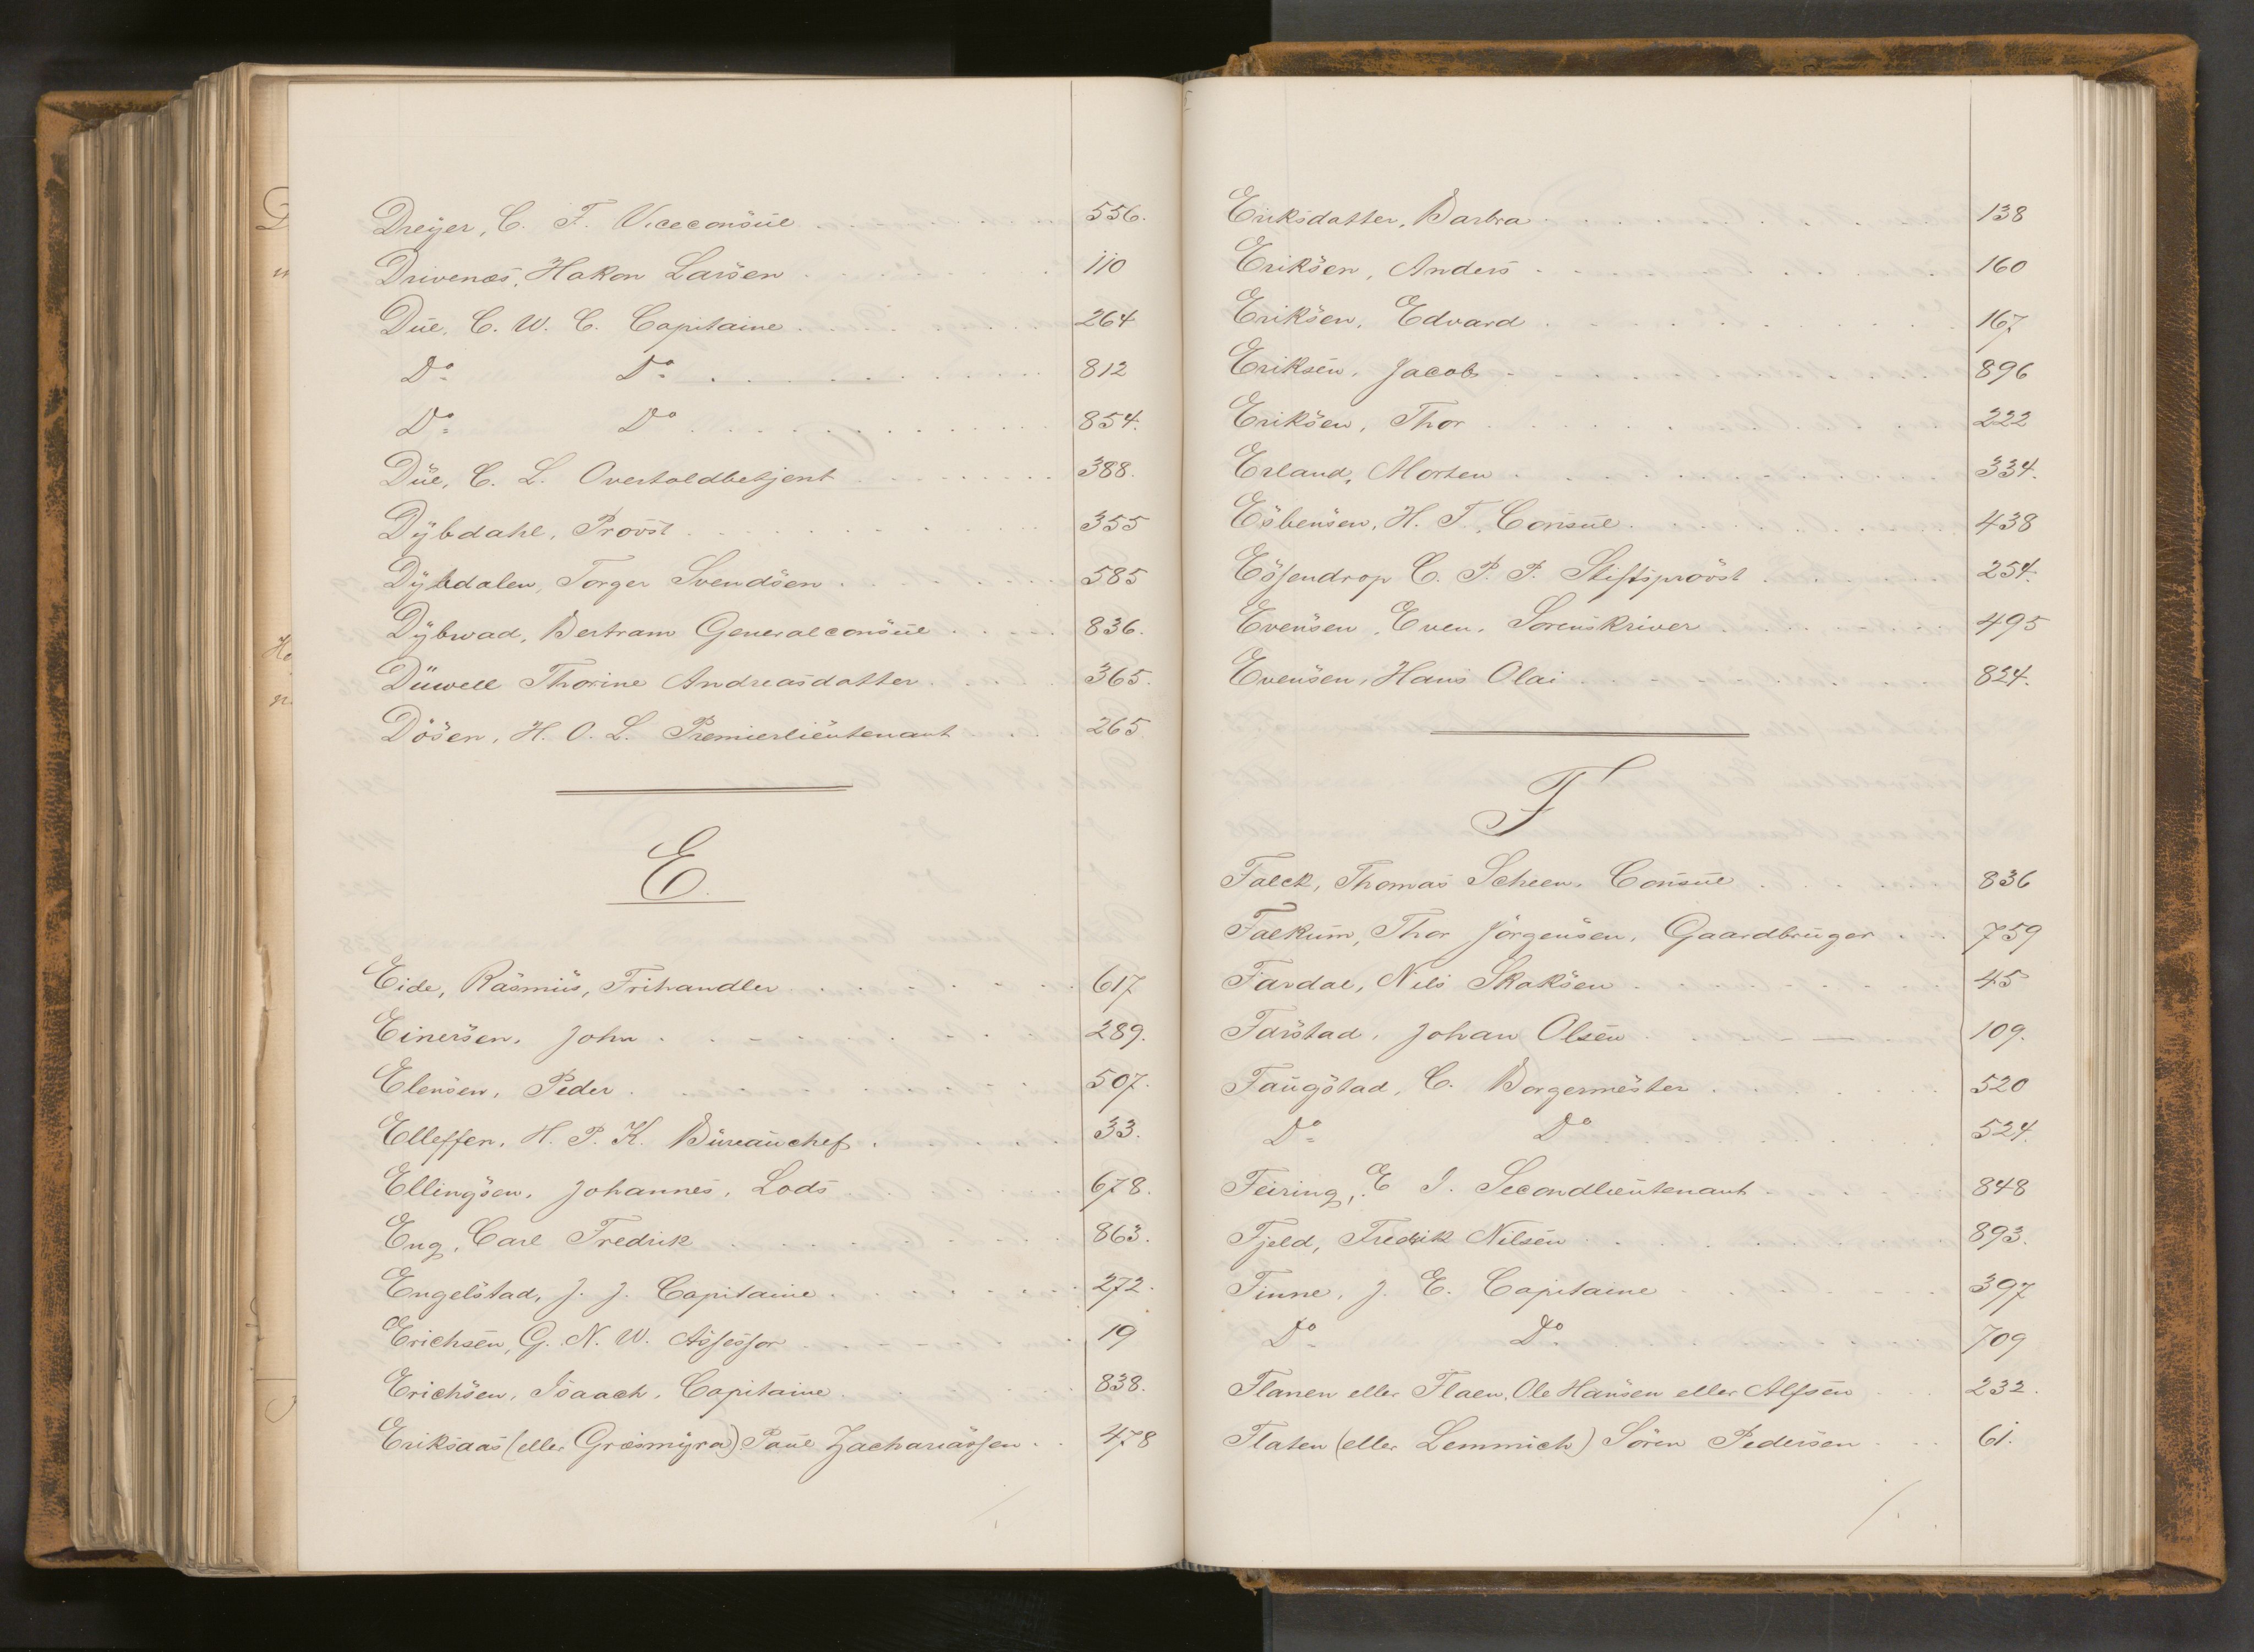 Dreÿer, C. F. Viceconsul 556.
Drivenæs, Hakon Larsen 110
Due, C. W. C. Capitaine 264
Do Do 812
Do Do 854.
Due, C. L. Overtoldbetjent 388.
Dÿbdahl, Provst 355
Dÿbdalen, Torger Svendsen 585
Dÿbwad, Bertram Generalconsul 836.
Düwell Thorine Andreasdatter 365.
Dösen, H. O. L. Premierlieutenant 265
E.
Eide, Rasmus, Frihandler 617
Einersen, John 289.
Elensen, Peder 507.
Elleffen, H. P. K. Bureauchef 33.
Ellingsen, Johannes, Lods 678.
Eng, Carl Fredrik 863.
Engelstad, J. J. Capitaine 272.
Erichsen, G. N. W. Assessor 19
Erichsen, Isaach, Capitaine 838.
Eriksaas (eller Græsmÿra) Paul Zachariassen 478
Eriksdatter, Barbra 138
Eriksen, Anders 160
Eriksen, Edvard 167
Eriksen, Jacob 896
Eriksen, Thor 222
Erland, Morten 334.
Esbensen, H. T., Consul 438
Essendrop C. P. P. Stiftsprovst 254.
Evensen, Even, Sorenskriver 495
Evensen, Hans Olai 824.
F
Falck, Thomas Scheen, Consul 836
Falkum, Thor Jörgensen, Gaardbruger 759
Fardal, Nils Skaksen 45
Farstad, Johan Olsen 109.
Faugstad, C. Borgermester 520
Do Do 524.
Feiring, E I. Secondlieutenant 848
Fjeld, Fredrik Nilsen 893.
Finne, J. E. Capitaine 397
Do Do 709
Flanen eller Flaen, Ole Hansen eller Alfsen 232.
Flaten (eller Lemmich) Sören Pedersen 61.